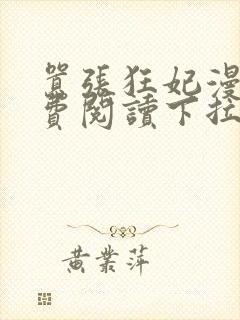 囂張狂妃漫
費閱讀下拉
黃業萍